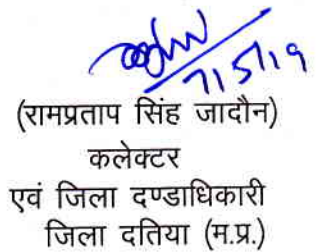 7/5/19
(रामप्रताप सिंह जादौन)
कलेक्टर
एवं जिला दण्डाधिकारी
जिला दतिया (म.प्र.)